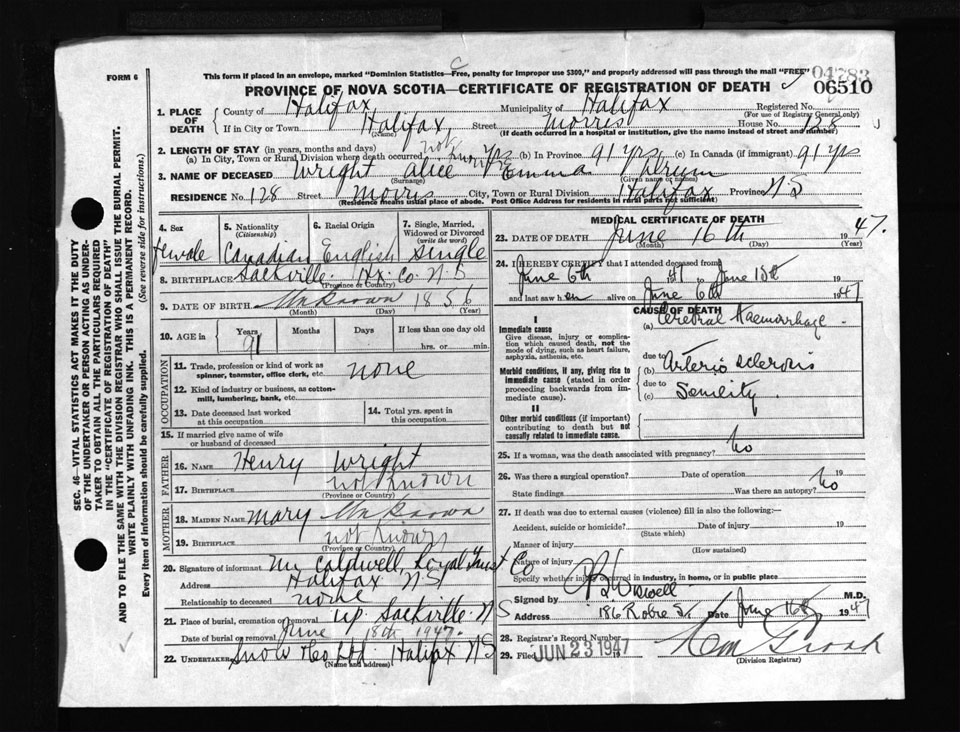 This form if placed in an envelope, marked "Dominion Statistics—Free, penalty for improper use $300," and properly addressed will pass through the mail "FREE" 04783
FORM 6
PROVINCE OF NOVA SCOTIA—CERTIFICATE OF REGISTRATION OF DEATH 06510
1. PLACE OF DEATH County of Halifax Municipality of Halifax Registered No.
(For use of Registrar General only)
If in City or Town Halifax Street Morris House No. 128
(Name) (If death occurred in a hospital or institution, give the name instead of street and number)
2. LENGTH OF STAY (in years, months and days)
(a) In City, Town or Rural Division where death occurred not known yrs (b) In Province 91 yrs (c) In Canada (if immigrant) 91 yrs
3. NAME OF DECEASED Wright Alice Emma
(Surname) (Given name or names)
RESIDENCE No 128 Street Morris City, Town or Rural Division Halifax Province N S
(Residence means usual place of abode. Post Office Address for residents in rural parts not sufficient)
4. Sex 5. Nationality (Citizenship) 6. Racial Origin 7. Single, Married, Widowed or Divorced (write the word)
Female Canadian English Single
8. BIRTHPLACE Sackville Hx. Co. N S
(Province or Country)
9. DATE OF BIRTH Unknown 1856
(Month) (Day) (Year)
10. AGE in Years Months Days If less than one day old
91 hrs. or min.
OCCUPATION
11. Trade, profession or kind of work as spinner, teamster, office clerk, etc. none
12. Kind of industry or business, as cotton-mill, lumbering, bank, etc.
13. Date deceased last worked at this occupation
14. Total yrs. spent in this occupation
15. If married give name of wife or husband of deceased
FATHER
16. NAME Henry Wright
17. BIRTHPLACE not known
(Province or Country)
MOTHER
18. MAIDEN NAME Mary Unknown
19. BIRTHPLACE not known
(Province or Country)
20. Signature of informant Mr Caldwell, Royal Trust Co
Address Halifax N S
Relationship to deceased none
21. Place of burial, cremation or removal up. Sackville. N S
Date of burial or removal June 18th 1947.
22. UNDERTAKER Snow & Co Ltd. Halifax N S
(Name and address)
MEDICAL CERTIFICATE OF DEATH
23. DATE OF DEATH June 16th 1947.
(Month) (Day) (Year)
24. I HEREBY CERTIFY that I attended deceased from
June 6th 1947 to June 15th
and last saw her alive on June 6th 1947
CAUSE OF DEATH
I
Immediate cause (a) Cerebral Haemorrhage
Give disease, injury or complication which caused death, not the mode of dying, such as heart failure, asphyxia, asthenia, etc.
due to
(b) Arterio sclerosis
Morbid conditions, if any, giving rise to immediate cause (stated in order proceeding backwards from immediate cause).
due to
(c) Senility.
II
Other morbid conditions (if important) contributing to death but not causally related to immediate cause.
25. If a woman, was the death associated with pregnancy? No
26. Was there a surgical operation? Date of operation 19
State findings Was there an autopsy? No
27. If death was due to external causes (violence) fill in also the following:—
Accident, suicide or homicide? Date of injury 19
(State which)
Manner of injury
(How sustained)
Nature of injury
Specify whether injury occurred in industry, in home, or in public place
Signed by M.D.
Address 186 Robie St. Date June 16th 1947
28. Registrar's Record Number
29. Filed JUN 23 1947
(Division Registrar)
SEC. 46—VITAL STATISTICS ACT MAKES IT THE DUTY
OF THE UNDERTAKER OR PERSON ACTING AS UNDER-
TAKER TO OBTAIN ALL THE PARTICULARS REQUIRED
IN THE "CERTIFICATE OF REGISTRATION OF DEATH"
AND TO FILE THE SAME WITH THE DIVISION REGISTRAR WHO SHALL ISSUE THE BURIAL PERMIT.
WRITE PLAINLY WITH UNFADING INK. THIS IS A PERMANENT RECORD.
Every item of information should be carefully supplied. (See reverse side for instructions.)